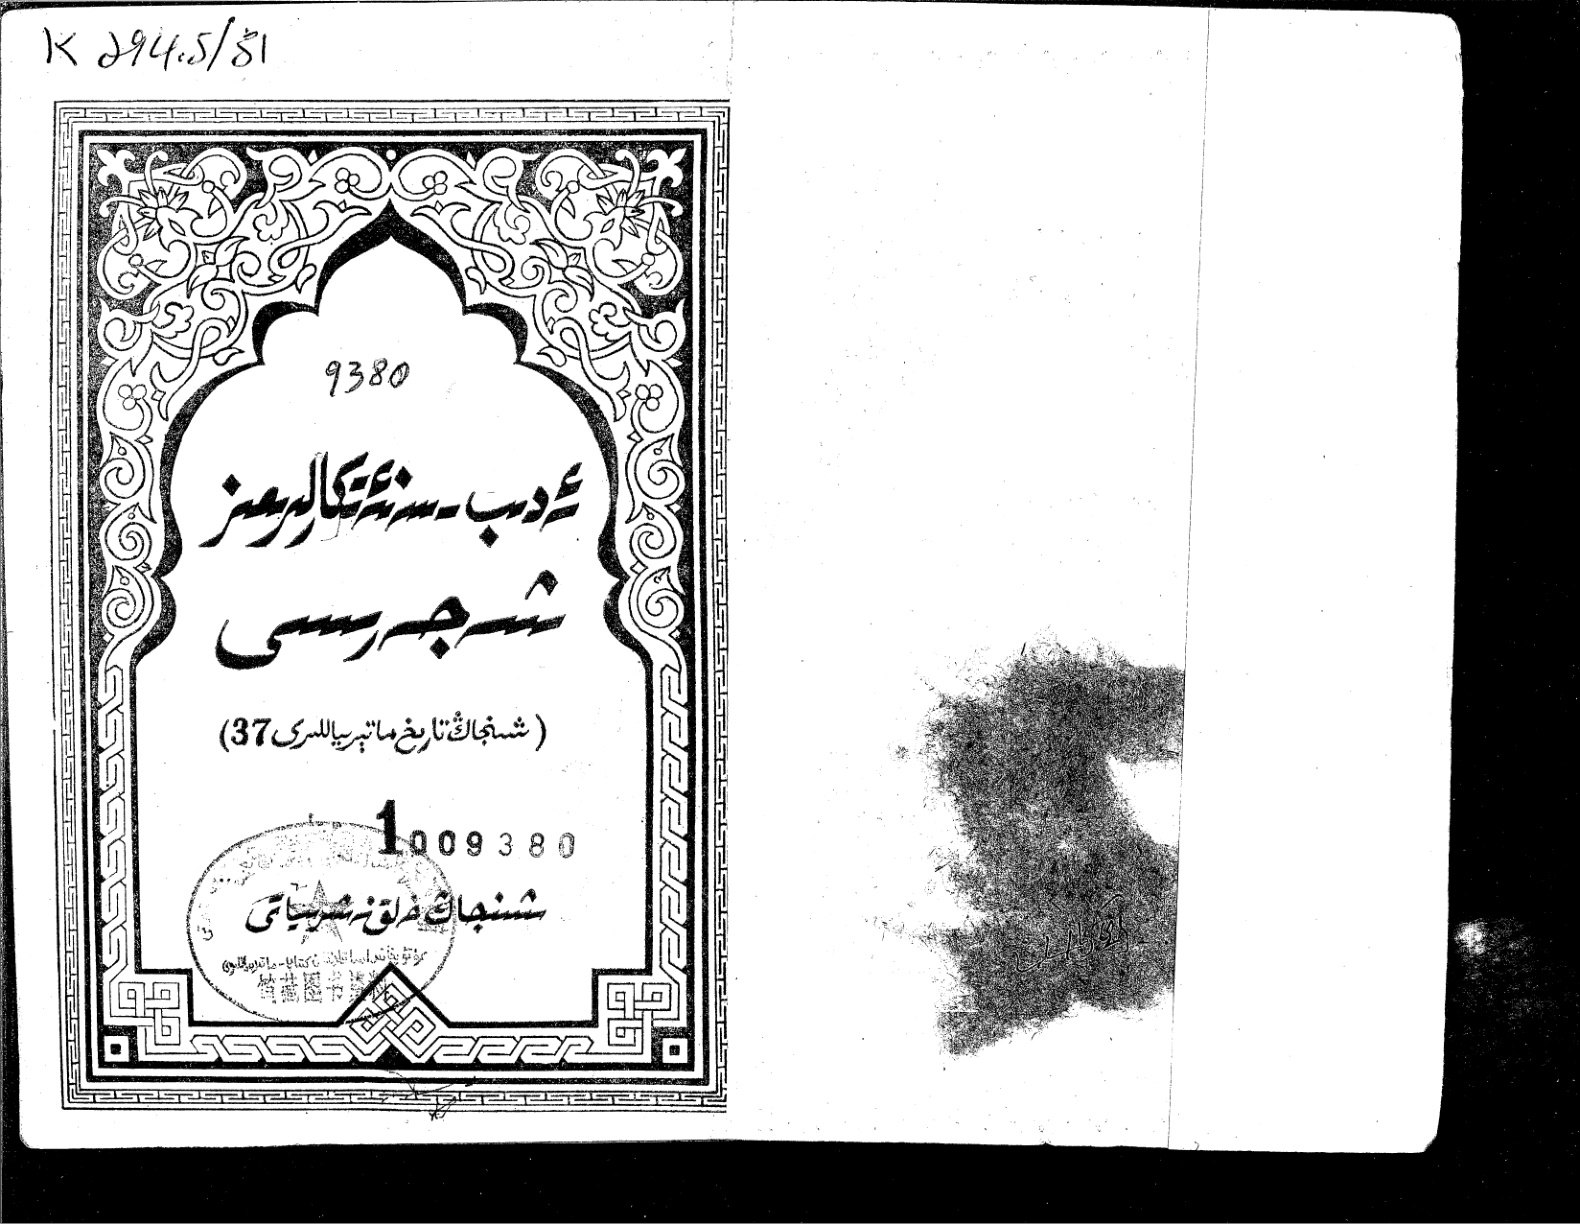 K 294.5/31
9380
ئەدىب-سەنئەتكارلىرىمىز
شەجەرىسى
(شىنجاڭ تارىخ ماتېرىياللىرى 37)
1009380
شىنجاڭ خەلق نەشرىياتى